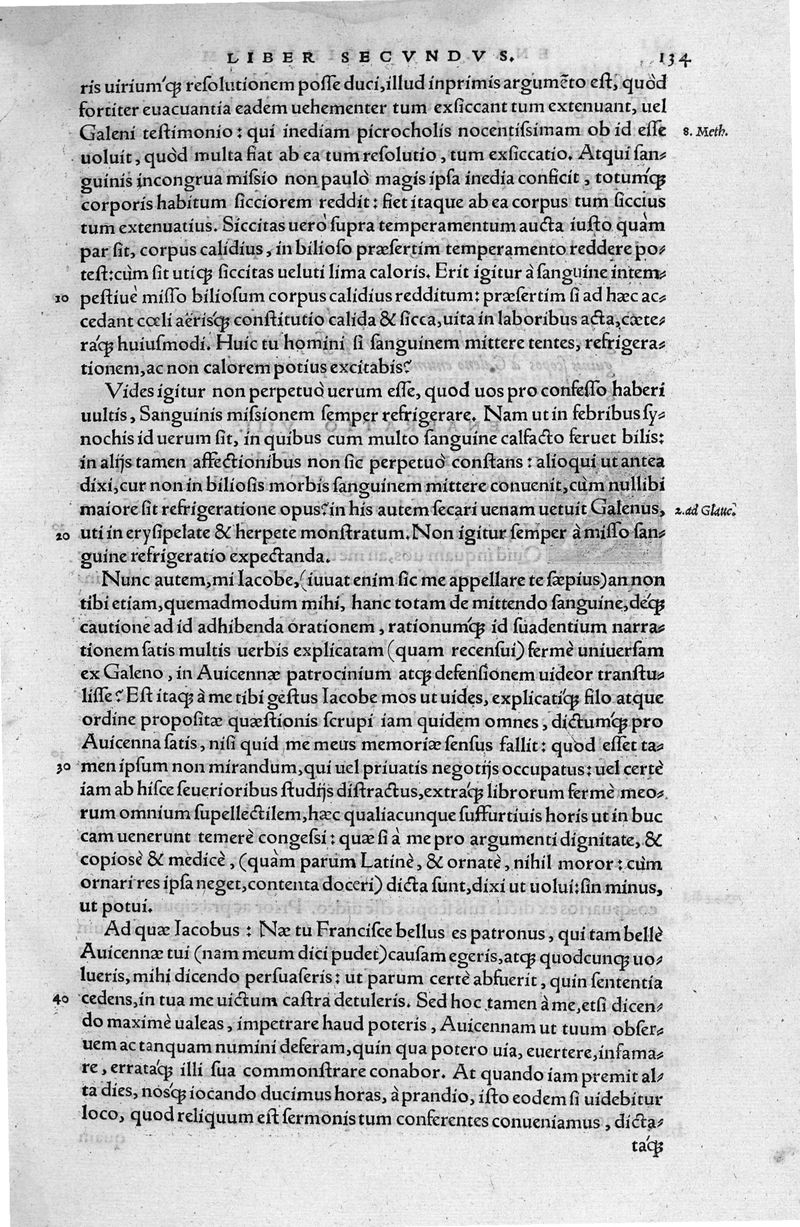 LIBER SECVNDVS. 134
ris uirium'q; resolutionem posse duci, illud inprimis argumẽto est, quòd
fortiter euacuantia eadem uehementer tum exsiccant tum extenuant, uel
Galeni testimonio: qui inediam picrocholis nocentissimam ob id esse 8. Meth.
uoluit, quòd multa fiat ab ea tum resolutio, tum exsiccatio. Atqui san-
guinis incongrua missio non paulò magis ipsa inedia conficit, totum'q;
corporis habitum sicciorem reddit: fiet itaque ab ea corpus tum siccius
tum extenuatius. Siccitas uerò supra temperamentum aucta iusto quàm
par sit, corpus calidius, in bilioso præsertim temperamento reddere po-
test: cùm sit utiq; siccitas ueluti lima caloris. Erit igitur à sanguine intem-
10 pestiuè misso biliosum corpus calidius redditum: præsertim si ad hæc ac-
cedant cœli aëris'q; constitutio calida & sicca, uita in laboribus acta, cæte-
ra'q; huiusmodi. Huic tu homini si sanguinem mittere tentes, refrigera-
tionem, ac non calorem potius excitabis?
Vides igitur non perpetuò uerum esse, quod uos pro confesso haberi
uultis, Sanguinis missionem semper refrigerare. Nam ut in febribus sy-
nochis id uerum sit, in quibus cum multo sanguine calfacto feruet bilis:
in alijs tamen affectionibus non sic perpetuò constans: alioqui ut antea
dixi, cur non in biliosis morbis sanguinem mittere conuenit, cùm nullibi
maiore sit refrigeratione opus? in his autem secari uenam uetuit Galenus, 2. ad Glauc.
20 uti in erysipelate & herpete monstratum. Non igitur semper à misso san-
guine refrigeratio expectanda.
Nunc autem, mi Iacobe, (iuuat enim sic me appellare te sæpius) an non
tibi etiam, quemadmodum mihi, hanc totam de mittendo sanguine, de'q;
cautione ad id adhibenda orationem, rationum'q; id suadentium narra-
tionem satis multis uerbis explicatam (quam recensui) fermè uniuersam
ex Galeno, in Auicennæ patrocinium atq; defensionem uideor transtu-
lisse? Est itaq; à me tibi gestus Iacobe mos ut uides, explicati'q; filo atque
ordine propositæ quæstionis scrupi iam quidem omnes, dictum'q; pro
Auicenna satis, nisi quid me meus memoriæ sensus fallit: quòd esset ta-
30 men ipsum non mirandum, qui uel priuatis negotijs occupatus: uel certè
iam ab hisce seuerioribus studijs distractus, extra'q; librorum fermè meo-
rum omnium supellectilem, hæc qualiacunque suffurtiuis horis ut in buc
cam uenerunt temerè congessi: quæ si à me pro argumenti dignitate, &
copiosè & medicè, (quàm parum Latinè, & ornatè, nihil moror: cùm
ornari res ipsa neget, contenta doceri) dicta sunt, dixi ut uolui: sin minus,
ut potui.
Ad quæ Iacobus: Næ tu Francisce bellus es patronus, qui tam bellè
Auicennæ tui (nam meum dici pudet) causam egeris, atq; quodcunq; uo-
lueris, mihi dicendo persuaseris: ut parum certè abfuerit, quin sententia
40 cedens, in tua me uictum castra detuleris. Sed hoc tamen à me, etsi dicen-
do maximè ualeas, impetrare haud poteris, Auicennam ut tuum obser-
uem ac tanquam numini deferam, quin qua potero uia, euertere, infama-
re, errata'q; illi sua commonstrare conabor. At quando iam premit al-
ta dies, nos'q; iocando ducimus horas, à prandio, isto eodem si uidebitur
loco, quod reliquum est sermonis tum conferentes conueniamus, dicta-
ta'q;